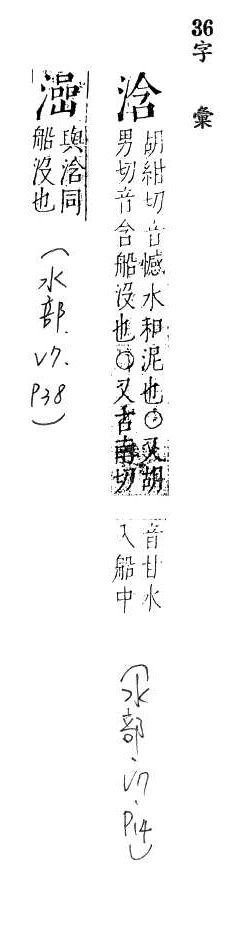 36字彙
浛
胡紺切音憾水和泥也○又胡
男切音含船沒也○又古南切
音甘水
入船中
(水部.V7.P14)
與浛同
船沒也
(水部.V7.P38)